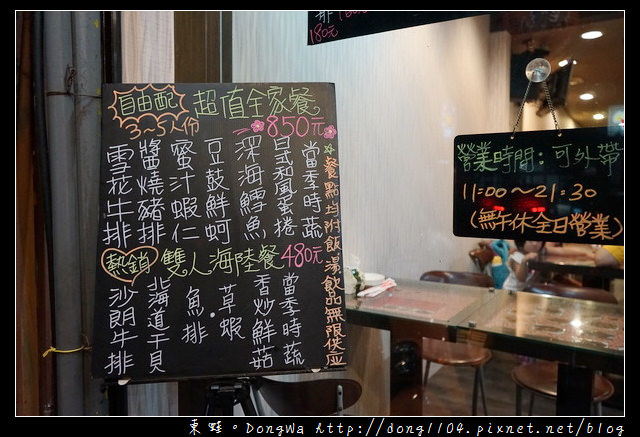 180元
自由配
3~5人份
超值全家餐
850元
當季時蔬
日式和風蛋捲
深海鱈魚
豆鼓鮮蚵
蜜汁蝦仁
醬燒豬排
雪花牛排
熱銷
雙人海陸餐
480元
當季時蔬
香炒鮮菇
草蝦
魚排
北海道干貝
沙朗牛排
☆餐點均附飯、湯、飲品無限供應
營業時間:可外帶
11:00~21:30
(無午休全日營業)
東蛙。DongWa http://dong1104.pixnet.net/blog